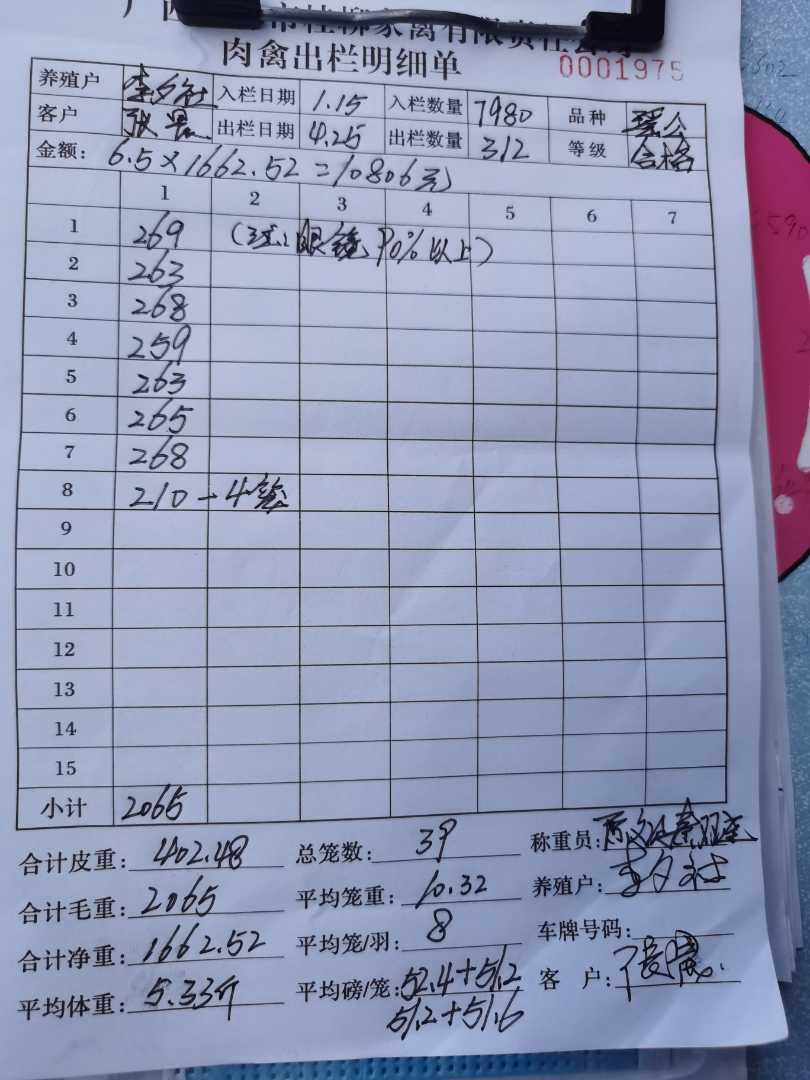 市桂柳家禽有限责任公司
肉禽出栏明细单 0001975
养殖户 李夕社 入栏日期 1.15 入栏数量 7980 品种
客户 出栏日期 4.25 出栏数量 312 等级 合格
金额: 6.5×1662.52=10806元
1 2 3 4 5 6 7
1 269 眼镜90%以上)
2 263
3 268
4 259
5 263
6 265
7 268
8 210-4笼
9
10
11
12
13
14
15
小计 2065
合计皮重: 402.48 总笼数: 39 称重员:
合计毛重: 2065 平均笼重: 10.32 养殖户: 李夕社
合计净重: 1662.52 平均笼/羽: 8 车牌号码:
平均体重: 5.33斤 平均磅/笼: 52.4+51.2 客 户:
51.2+51.6